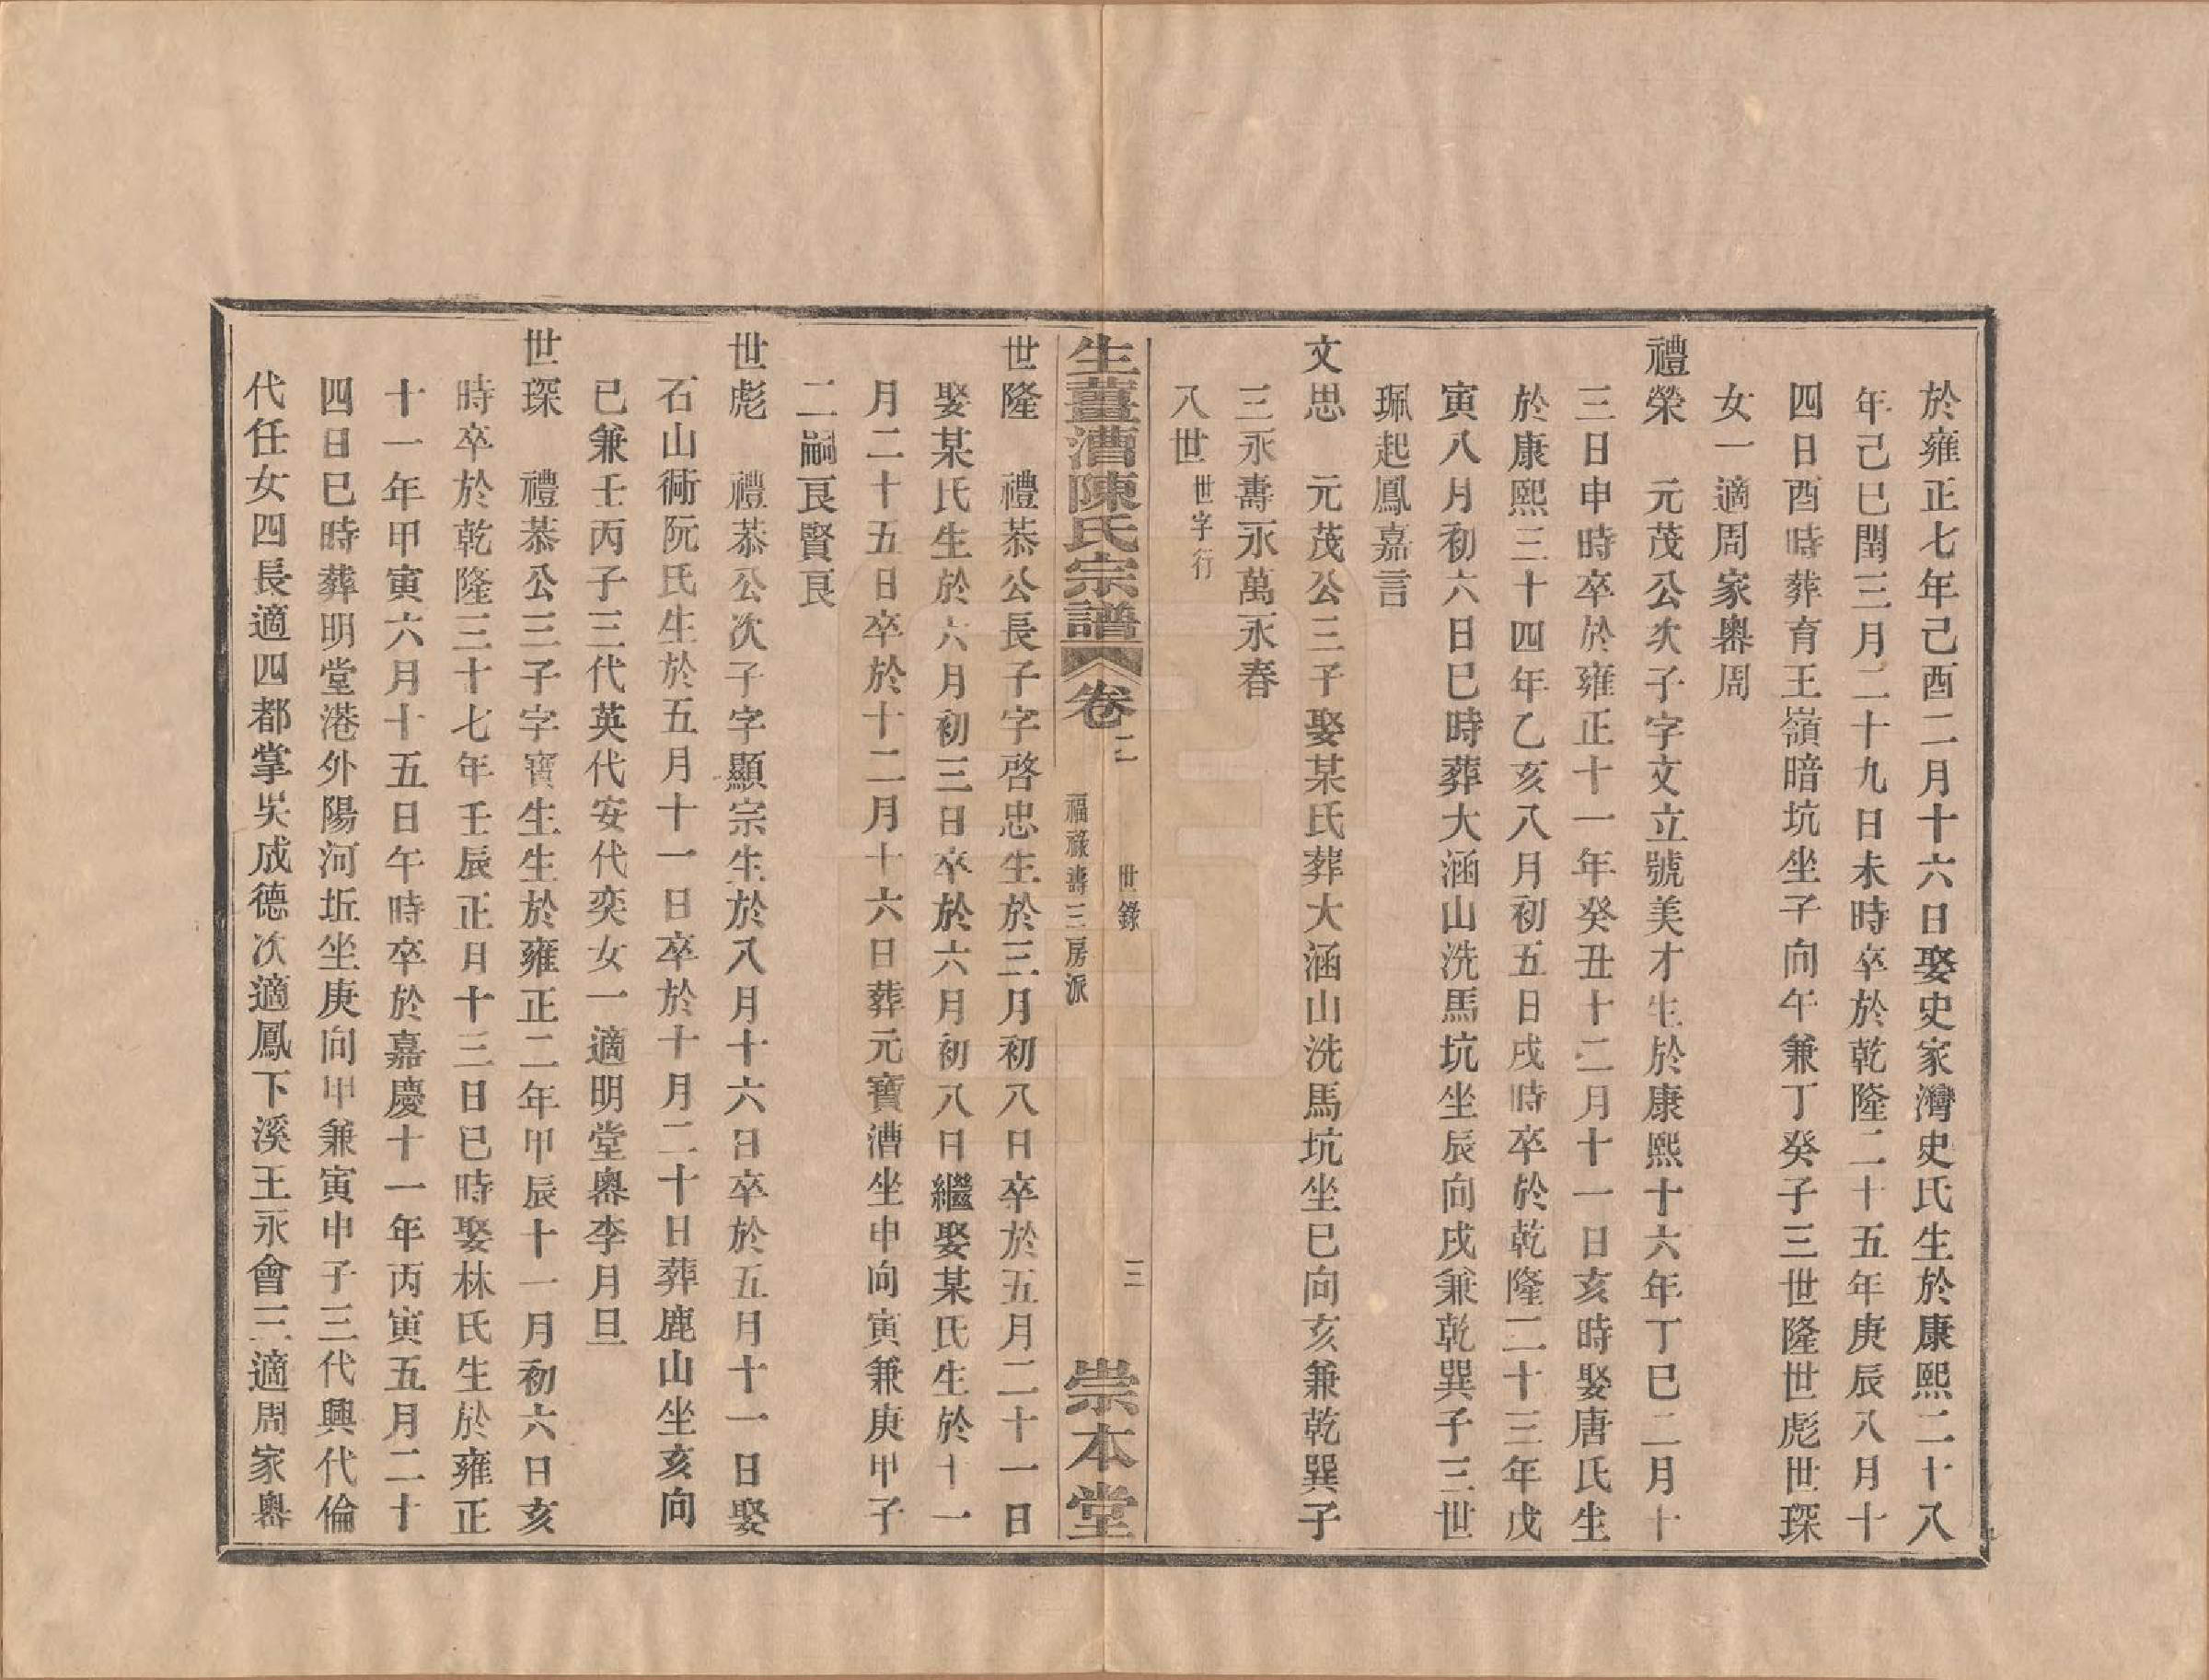 於雍正七年己酉二月十六日娶史家灣史氏生於康熙二十八
年己巳閏三月二十九日未時卒於乾隆二十五年庚辰八月十
四日酉時葬育王嶺暗坑坐子向午兼丁癸子三世隆世彪世琛
女一適周家嶴周
禮榮　元茂公次子字文立號美才生於康熙十六年丁巳二月十
三日申時卒於雍正十一年癸丑十二月十一日亥時娶唐氏生
於康熙三十四年乙亥八月初五日戌時卒於乾隆二十三年戊
寅八月初六日巳時葬大涵山洗馬坑坐辰向戌兼乾巽子三世
珮起鳳嘉言
文思　元茂公三子娶某氏葬大涵山洗馬坑坐巳向亥兼乾巽子
三永壽永萬永春
八世世字行
生薑漕陳氏宗譜　卷二　世錄　福祿壽三房派　三　崇本堂
世隆　禮恭公長子字啓忠生於三月初八日卒於五月二十一日
娶某氏生於六月初三日卒於六月初八日繼娶某氏生於十一
月二十五日卒於十二月十六日葬元寶漕坐申向寅兼庚甲子
二嗣良賢良
世彪　禮恭公次子字顯宗生於八月十六日卒於五月十一日娶
石山衕阮氏生於五月十一日卒於十月二十日葬鹿山坐亥向
巳兼壬丙子三代英代安代奕女一適明堂嶴李月旦
世琛　禮恭公三子字寶生生於雍正二年甲辰十一月初六日亥
時卒於乾隆三十七年壬辰正月十三日巳時娶林氏生於雍正
十一年甲寅六月十五日午時卒於嘉慶十一年丙寅五月二十
四日巳時葬明堂港外陽河坵坐庚向甲兼寅申子三代興代倫
代任女四長適四都掌吳成德次適鳳下溪王永會三適周家嶴